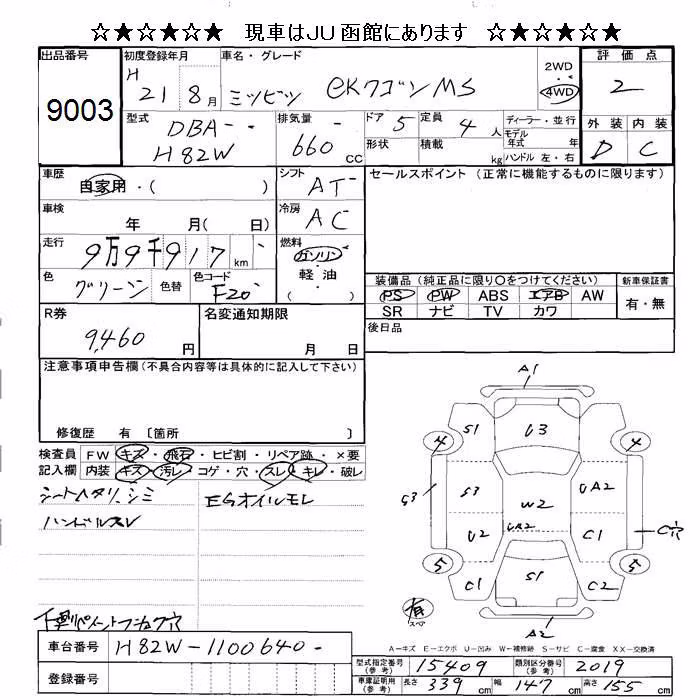 ☆★☆★☆★ 現車はJU函館にあります ☆★☆★☆★
出品番号 9003
初度登録年月 H 21 8月
車名・グレード ミツビツ eKワゴンMS
2WD 4WD
評価点 2
外装 D 内装 C
型式 DBA- H82W
排気量 660 cc
ドア 5
形状
定員 4人
積載 kg
ディーラー・並行
モデル年式 年
ハンドル 左・右
車歴 自家用・( )
シフト AT
セールスポイント (正常に機能するものに限ります)
車検 年 月( 日)
冷房 AC
走行 9万9千917 km
燃料 ガソリン・軽油 ( )
色 グリーン 色替
色コード F20
装備品 (純正品に限り○をつけてください) 新車保証書
PS PW ABS エアB AW
SR ナビ TV カワ
有・無
R券 9,460 円
名変通知期限 月 日
後日品
注意事項申告欄(不具合内容等は具体的に記入して下さい)
修復歴 有 〔箇所 〕
検査員記入欄
FW キズ・飛石・ヒビ割・リペア跡・×要
内装 キズ・汚レ・コゲ・穴・スレ・キレ・破レ
シートヘタリ、シミ
ハンドルスレ
EGオイルモレ
A1
S1 U3
4 4
S3 S3 W2 UA2
U2 UA2 C1 C穴
5 5
C1 S1 C2
A2
有 スペア
A−キズ E−エクボ U−凹み W−補修跡 S−サビ C−腐食 XX−交換済
車台番号 H82W-1100640-
登録番号
型式指定番号(参考) 15409 類別区分番号(参考) 2019
車庫証明用(参考) 長さ 339 cm 幅 147 cm 高さ 155 cm